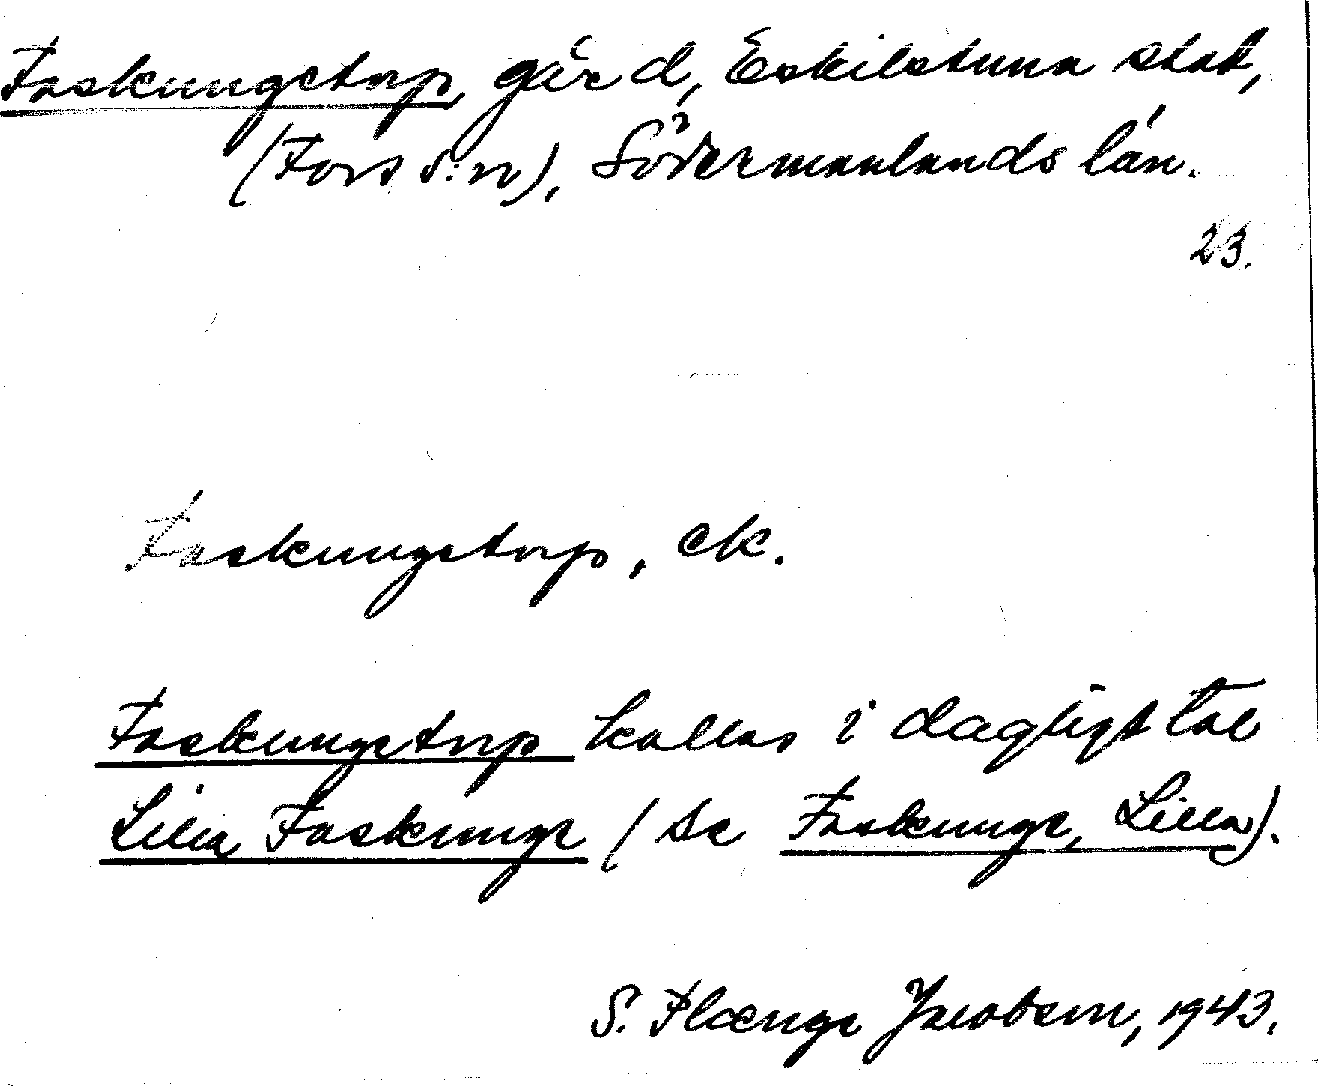 Faskungetorp, gård, Eskilstuna stad,
(Fors s:n), Södermanlands län.
23.
Faskungetorp, ek.
Faskungetorp kallas i dagligt tal
Lilla Faskunge (se Faskunge, Lilla).
S. Flænge Jacobson, 1943.